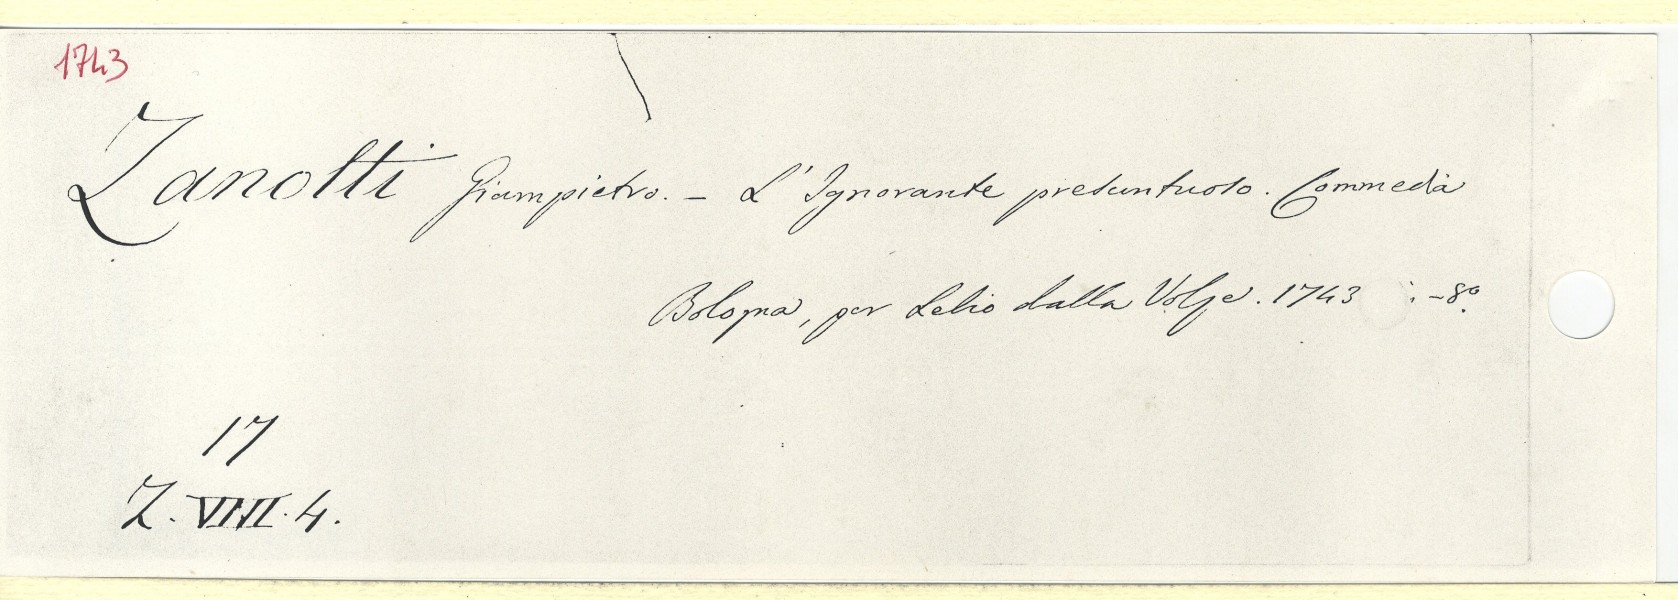 1743
Zanotti Giampietro. - L'Ignorante presuntuoso. Commedia
Bologna, per Lelio dalla Volpe. 1743 i.-8º.
17
Z. VIIII. 4.